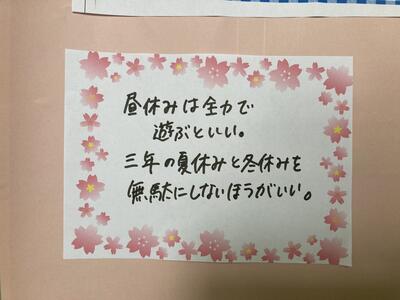 昼休みは全力で
遊ぶといい。
三年の夏休みと冬休みを
無駄にしないほうがいい。